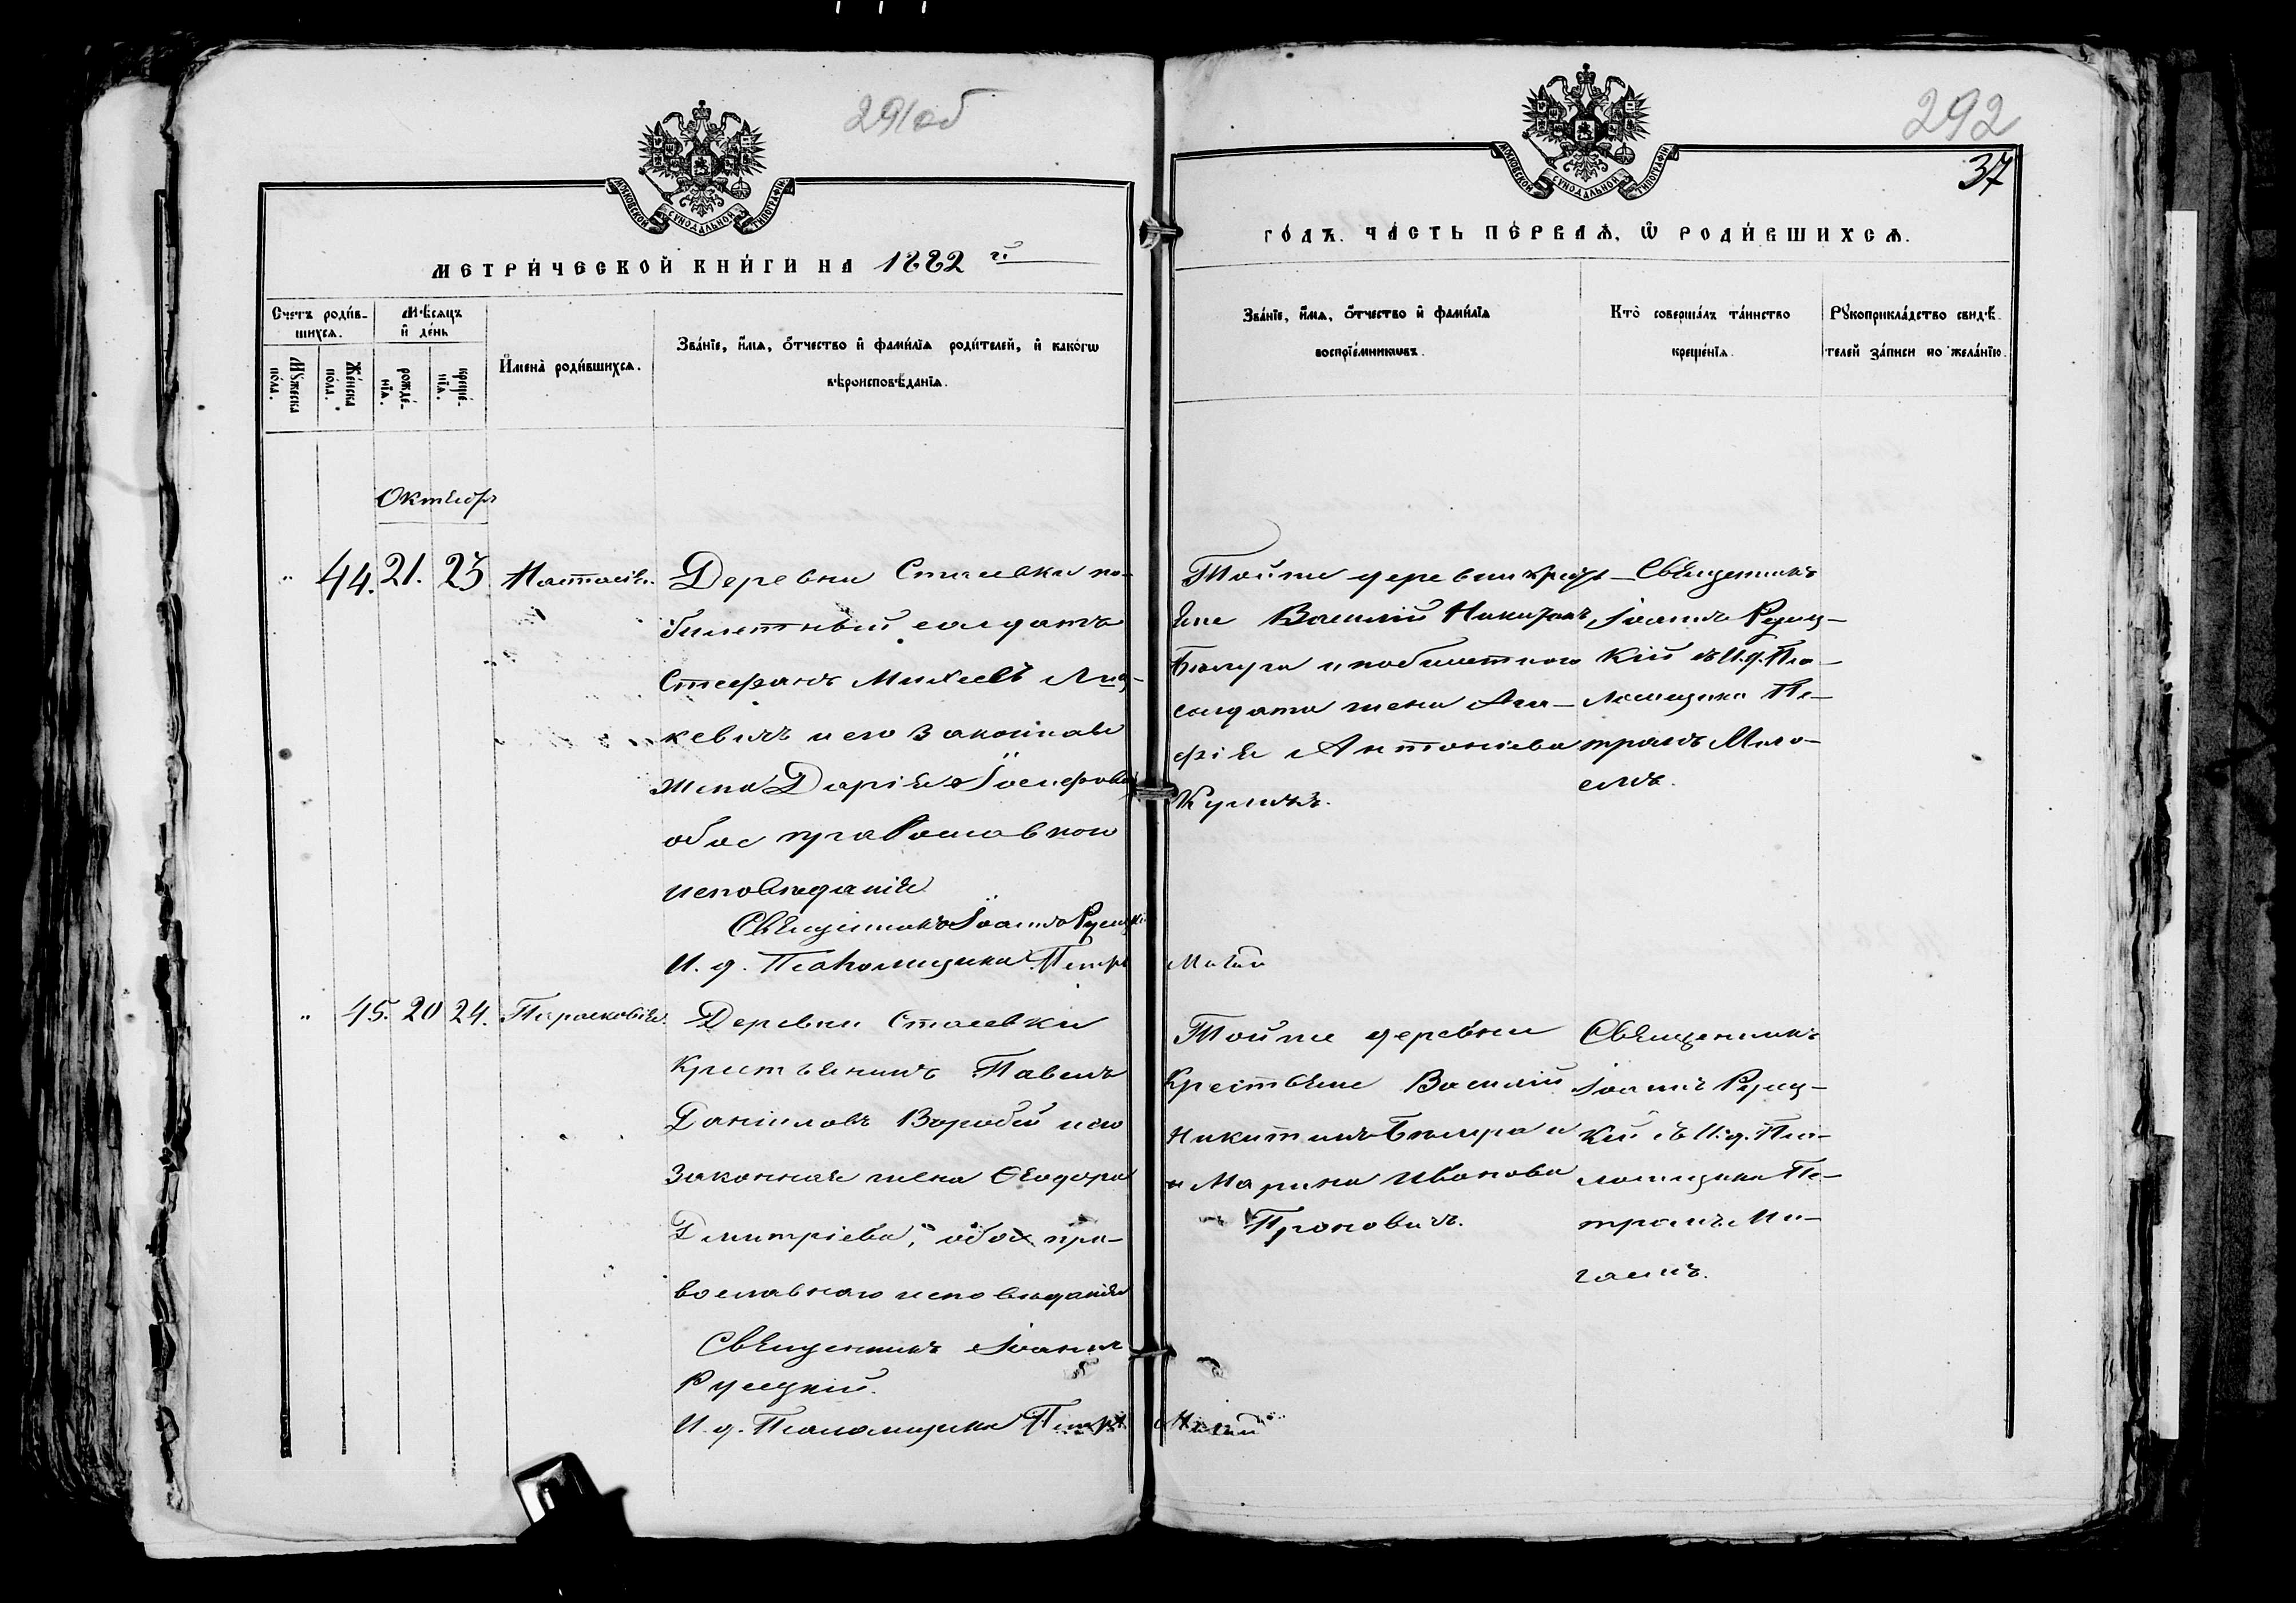 291 об
МОСКОВСКОЙ СѴНОДАЛЬНОЙ ТИПОГРАФІИ
МЕТРИ́ЧЕСКОЙ КНИ́ГИ НА 1882 г.
Счетъ роди́в-
шихсѧ.
Мꙋжеска
по́ла.
Же́нска
по́ла.
Мѣсѧцъ
и҆ де́нь
рожде́-
нїѧ.
креще́-
нїѧ.
И҆мена̀ роди́вшихсѧ.
Зва́нїе, и҆́мѧ, ѻ҆́тчество и҆ фами́лїѧ роди́телей, и҆ како́гѡ
вѣроисповѣ́данїѧ.
Октября
" 44. 21. 23. Настасія.
Деревни Сталевки по-
билетный солдатъ
Стефанъ Михеевъ
и его законная
жена Дарія Іосифова
обое православного
исповеданія
Священникъ Іоаннъ Русецкій
И. д. Псаломщика Петръ Мигай
" 45. 20 24. Парасковія.
Деревни Сталевки
Крестьянинъ Павелъ
Даніиловъ Воробей и его
законная жена Ѳеодора
Дмитріева, обое пра-
вославнаго исповеданія
Священникъ Іоаннъ
Русецкій.
И. д. Псаломщика Петръ Мигай
292
37
МОСКОВСКОЙ СѴНОДАЛЬНОЙ ТИПОГРАФІИ
ГО́ДЪ. ЧА́СТЬ ПЕ́РВАѦ, Ѡ҆ РОДИ́ВШИХСѦ.
Зва́нїе, и҆́мѧ, ѻ҆́тчество и҆ фами́лїѧ
воспрїе́мникѡвъ.
Кто̀ соверша́лъ та́инство
креще́нїѧ.
Рꙋкоприкла́дство свидѣ́-
телей за́писи по жела́нїю.
Тойже деревни кресть-
яне Василій Никитинъ
и побилетного
солдата жена Ага-
фія Антоніева
Куличъ.
Священникъ
Іоаннъ Русец-
кій съ И. д. Пса-
ломщика Пе-
тромъ
Тойже деревни
Крестьяне Василій
Никитинъ
и Марина Иванова
Проновичъ.
Священникъ
Іоаннъ Русец-
кій съ И. д. Пса-
ломщика Пе-
тромъ Ми-
гаемъ.